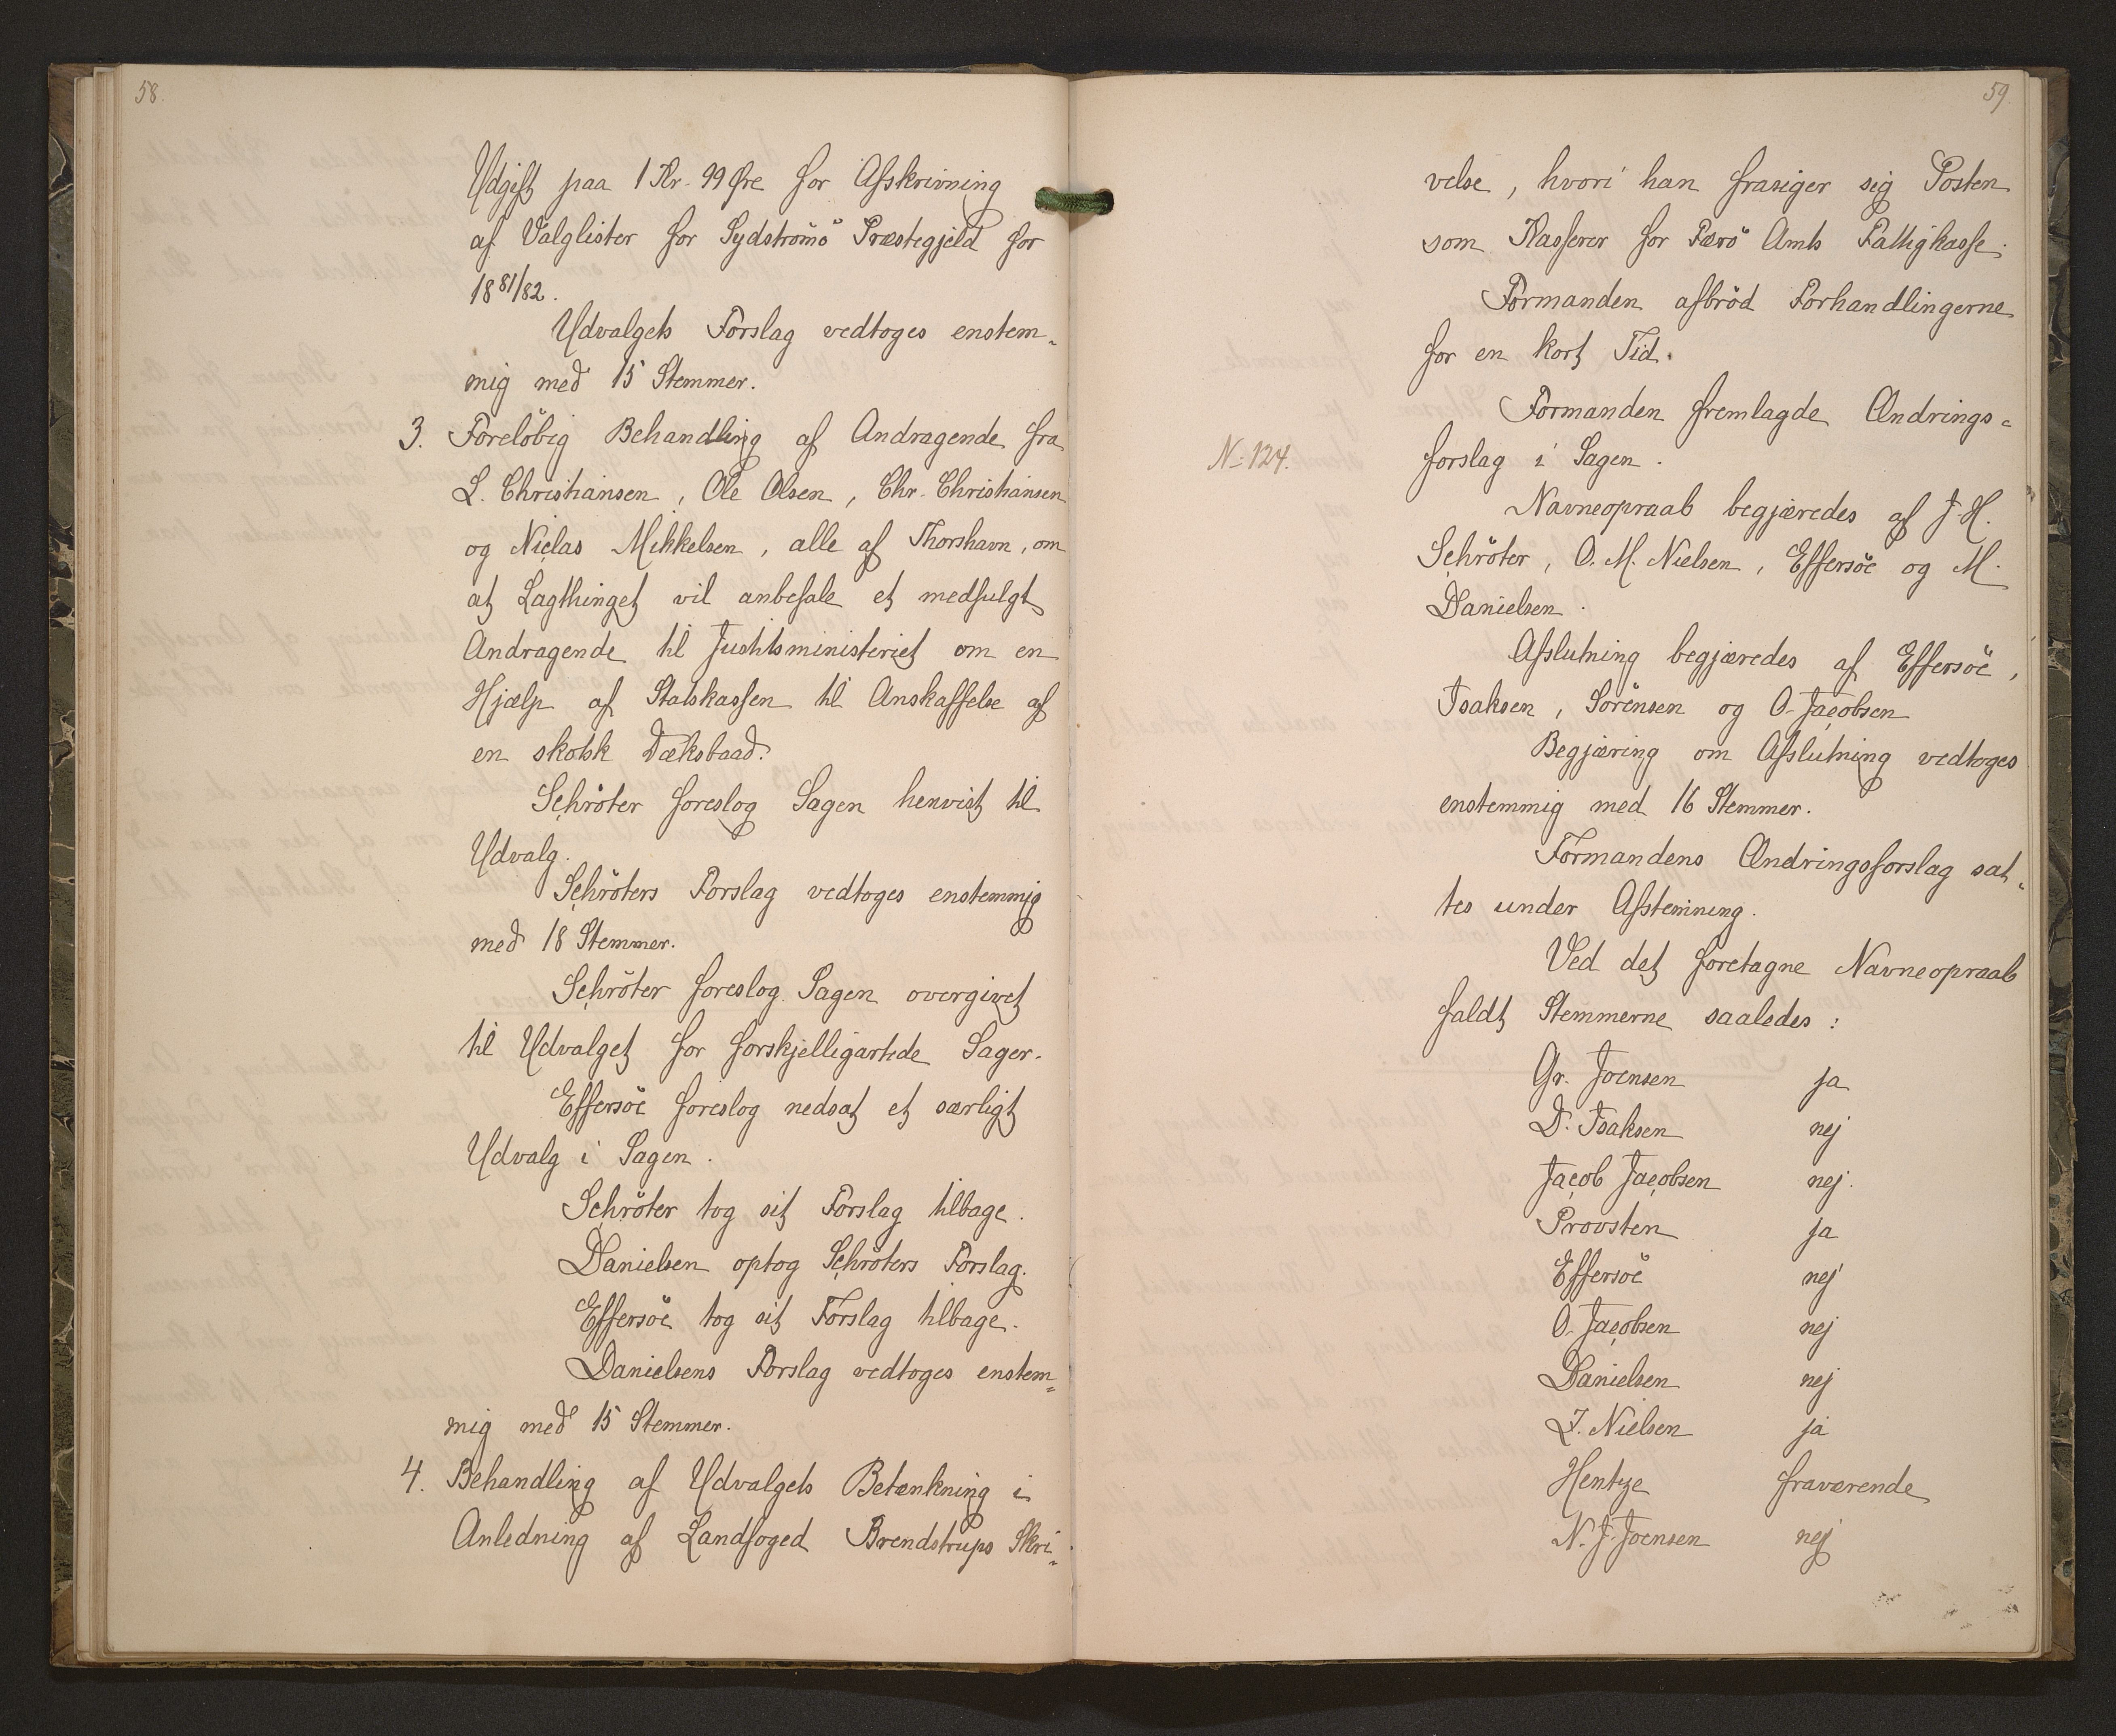 58.
Udgift paa 1 Kr. 99 Øre for Afskrivning
af Valglister for Sydstrømö Præstegjeld for
18 81/82.
Udvalgets Forslag vedtoges enstem-
mig med 15 Stemmer.
3. Foreløbig Behandling af Andragende fra
L. Christiansen, Ole Olsen, Chr. Christiansen
og Niclas Mikkelsen, alle af Thorshavn, om
at Lagthinget vil anbefale et medfulgt
Andragende til Justitsministeriet om en
Hjælp af Statskassen til Anskaffelse af
en skotsk Dæksbaad.
Schröter foreslog Sagen henvist til
Udvalg.
Schröters Forslag vedtoges enstemmig
med 18 Stemmer.
Schröter foreslog Sagen overgivet
til Udvalget for forskjelligartede Sager.
Effersöe foreslog nedsat et særligt
Udvalg i Sagen.
Schröter tog sit Forslag tilbage.
Danielsen optog Schröters Forslag.
Effersöe tog sit Forslag tilbage.
Danielsens Forslag vedtoges enstem-
mig med 15 Stemmer.
4. Behandling af Udvalgets Betænkning i
Anledning af Landfoged Brendstrups Skri-
59.
velse, hvori han frasiger sig Posten
som Kasserer for Færö Amts Fattigkasse.
Formanden afbröd Forhandlingerne
for en kort Tid.
Formanden fremlagde Ændrings-
N. 124. forslag i Sagen.
Navneopraab begjæredes af J. H.
Schröter, O. M. Nielsen, Effersöe og M.
Danielsen.
Afslutning begjæredes af Effersöe,
Isaksen, Sörensen og O. Jacobsen
Begjæring om Afslutning vedtoges
enstemmig med 16 Stemmer.
Formandens Ændringsforslag sat-
tes under Afstemning.
Ved det foretagne Navneopraab
faldt Stemmerne saaledes:
Gr. Joensen ja
D. Isaksen nej
Jacob Jacobsen nej.
Provsten ja
Effersöe nej
O. Jacobsen nej
Danielsen nej
J. Nielsen ja
Hentze fraværende
N. J. Joensen nej